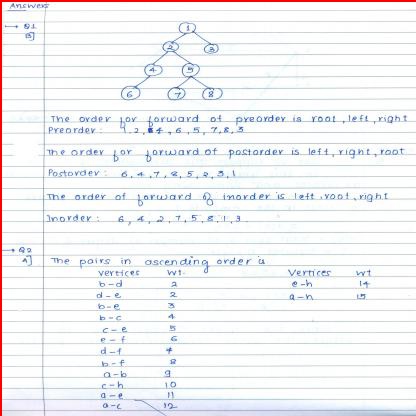 Answers
→ Q1
B]
1
2 3
4 5
6 7 8
The order for forward of preorder is root, left, right
Preorder : 1, 2, 4, 6, 5, 7, 8, 3
The order for forward of postorder is left, right, root
Postorder : 6, 4, 7, 8, 5, 2, 3, 1
The order of forward of inorder is left, root, right
Inorder : 6, 4, 2, 7, 5, 8, 1, 3
→ Q2
A] The pairs in ascending order is
Vertices Wt. Vertices Wt
b-d 2 e-h 14
d-e 2 a-h 15
b-e 3
b-c 4
c-e 5
e-f 6
d-f 7
b-f 8
a-b 9
c-h 10
a-e 11
a-c 12